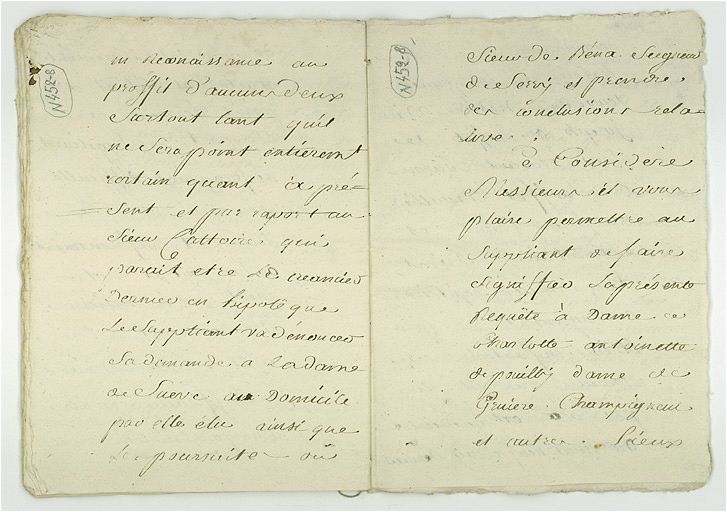 N452-8
in reconaissance au
proffit d'aucun deux
surtout tant quil
ne sera point entièremt
certain quant à pré=
sent et par raport au
sieur Cattoire qui
parait etre le creancier
dernier en hipoteque
Le Suppliant va dénoncer
sa demande a La dame
de Suève au Domicile
par elle élu ainsi que
La poursuite ou
N452-8
Sieur de Réna Seigneur
de Servi et prendre
des conclusions rela
tive.
à Considéré
Messieurs il vous
plaise permettre au
Suppliant de faire
signiffier sa présente
Requête à Dame
Charlotte antoinette
de pouilly dame de
Champigneul
et autres Lieux